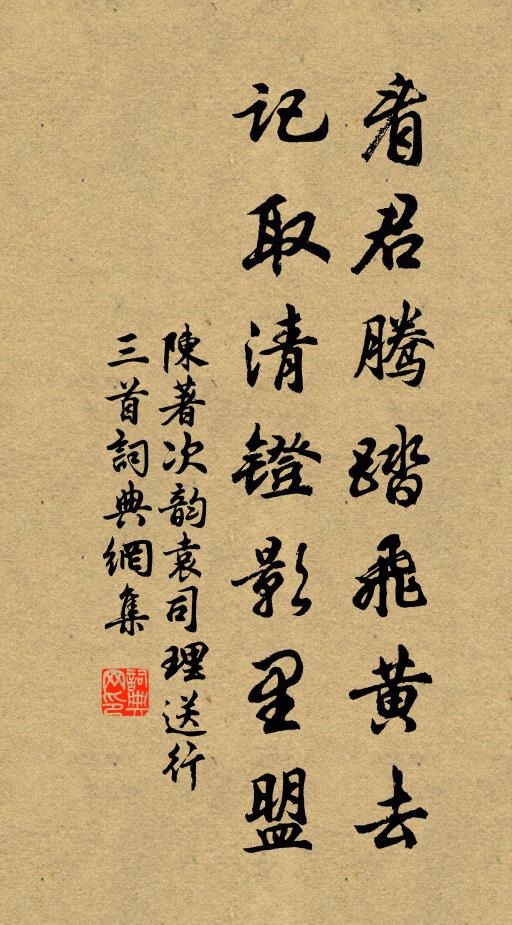 看君騰踏飛黃去
記取清鐙影里盟
陳著次韵袁司理送行
三首詞典網集
詞典网印